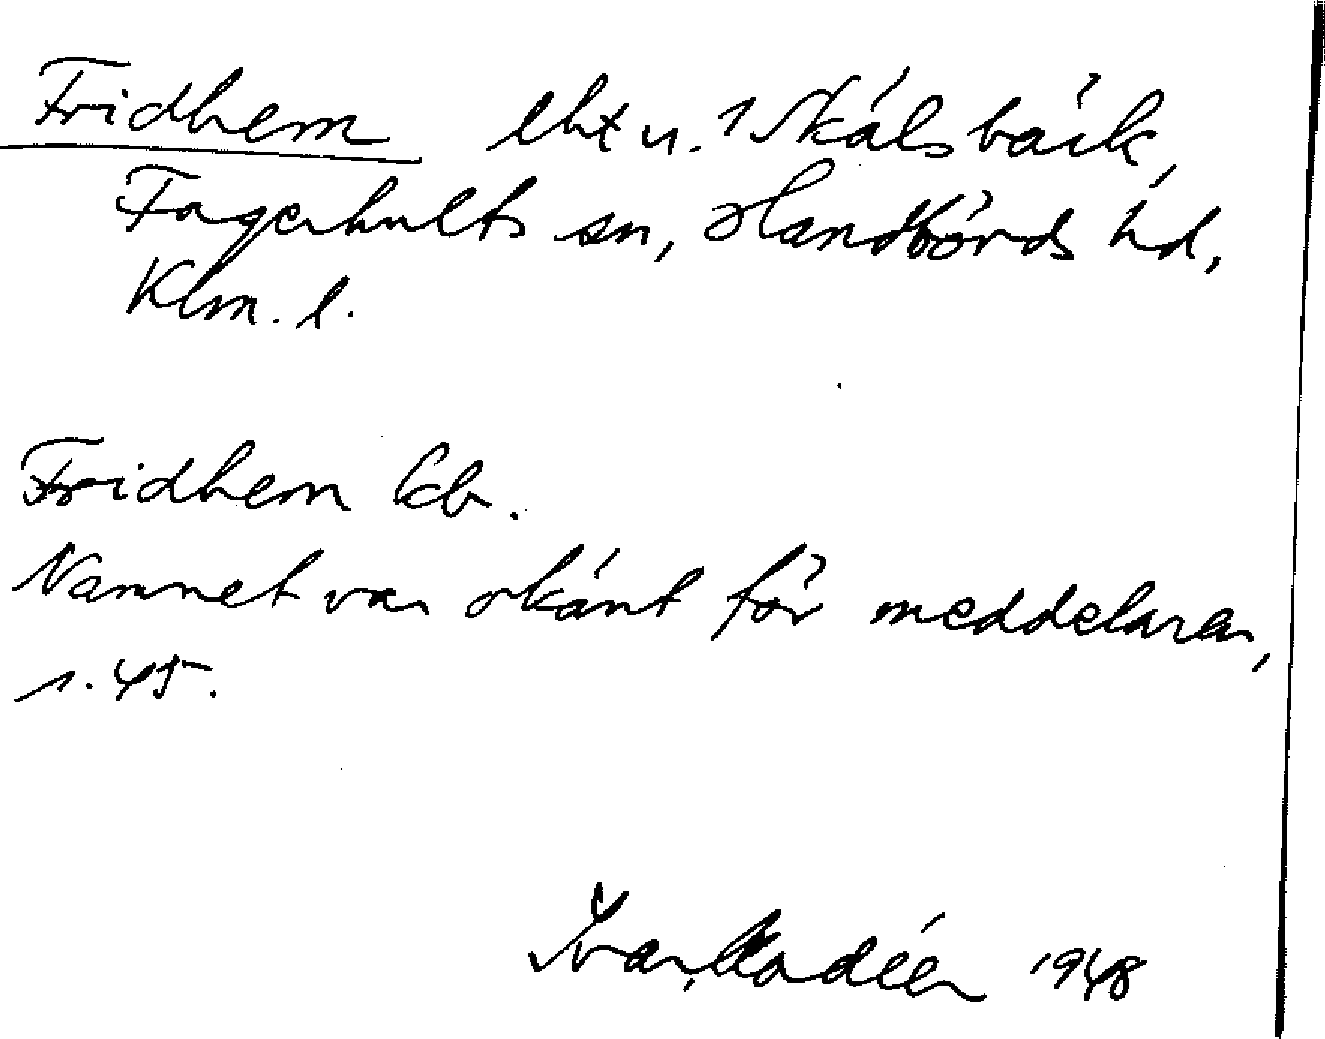 Fridhem lht u. 1 Skälsbäck,
Fagerhults sn, Handbörds hd,
Klm. l.
Fridhem Eb.
Namnet var okänt för meddelaren,
s. 45.
Ivar Modéer 1948